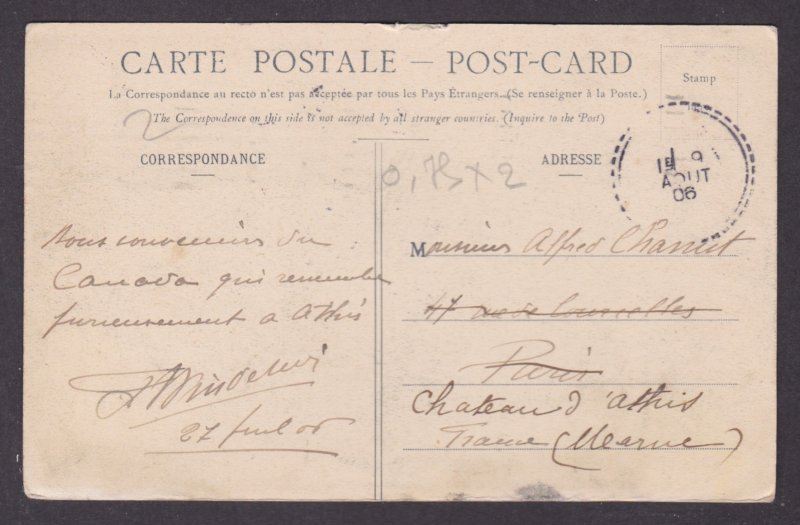 CARTE POSTALE — POST-CARD
Stamp
La Correspondance au recto n'est pas acceptée par tous les Pays Étrangers. (Se renseigner à la Poste.)
The Correspondence on this side is not accepted by all stranger countries. (Inquire to the Post)
2
CORRESPONDANCE
ADRESSE
0,75 x 2
9
AOUT
06
Bons souvenirs du
Canada qui
furieusement a Athis
27 Juil 06
Monsieur Alfred
47 rue de Courcelles
Paris
Chateau d'Athis
France (Marne)